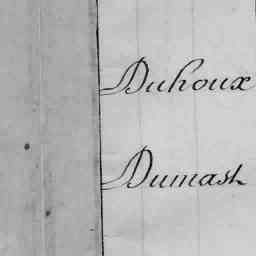 Duhoux
Dumast